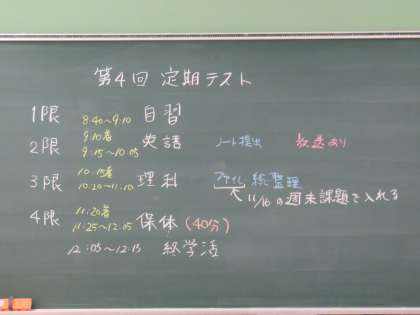 第4回 定期テスト
1限 8:40~9:10 自習
9:10着
2限 9:15~10:05 英語 ノート提出 放送あり
10:15着
3限 10:20~11:10 理科 ファイル 続 整理
11/16の週末課題を入れる
11:20着
4限 11:25~12:05 保体 (40分)
12:05~12:15 終学活